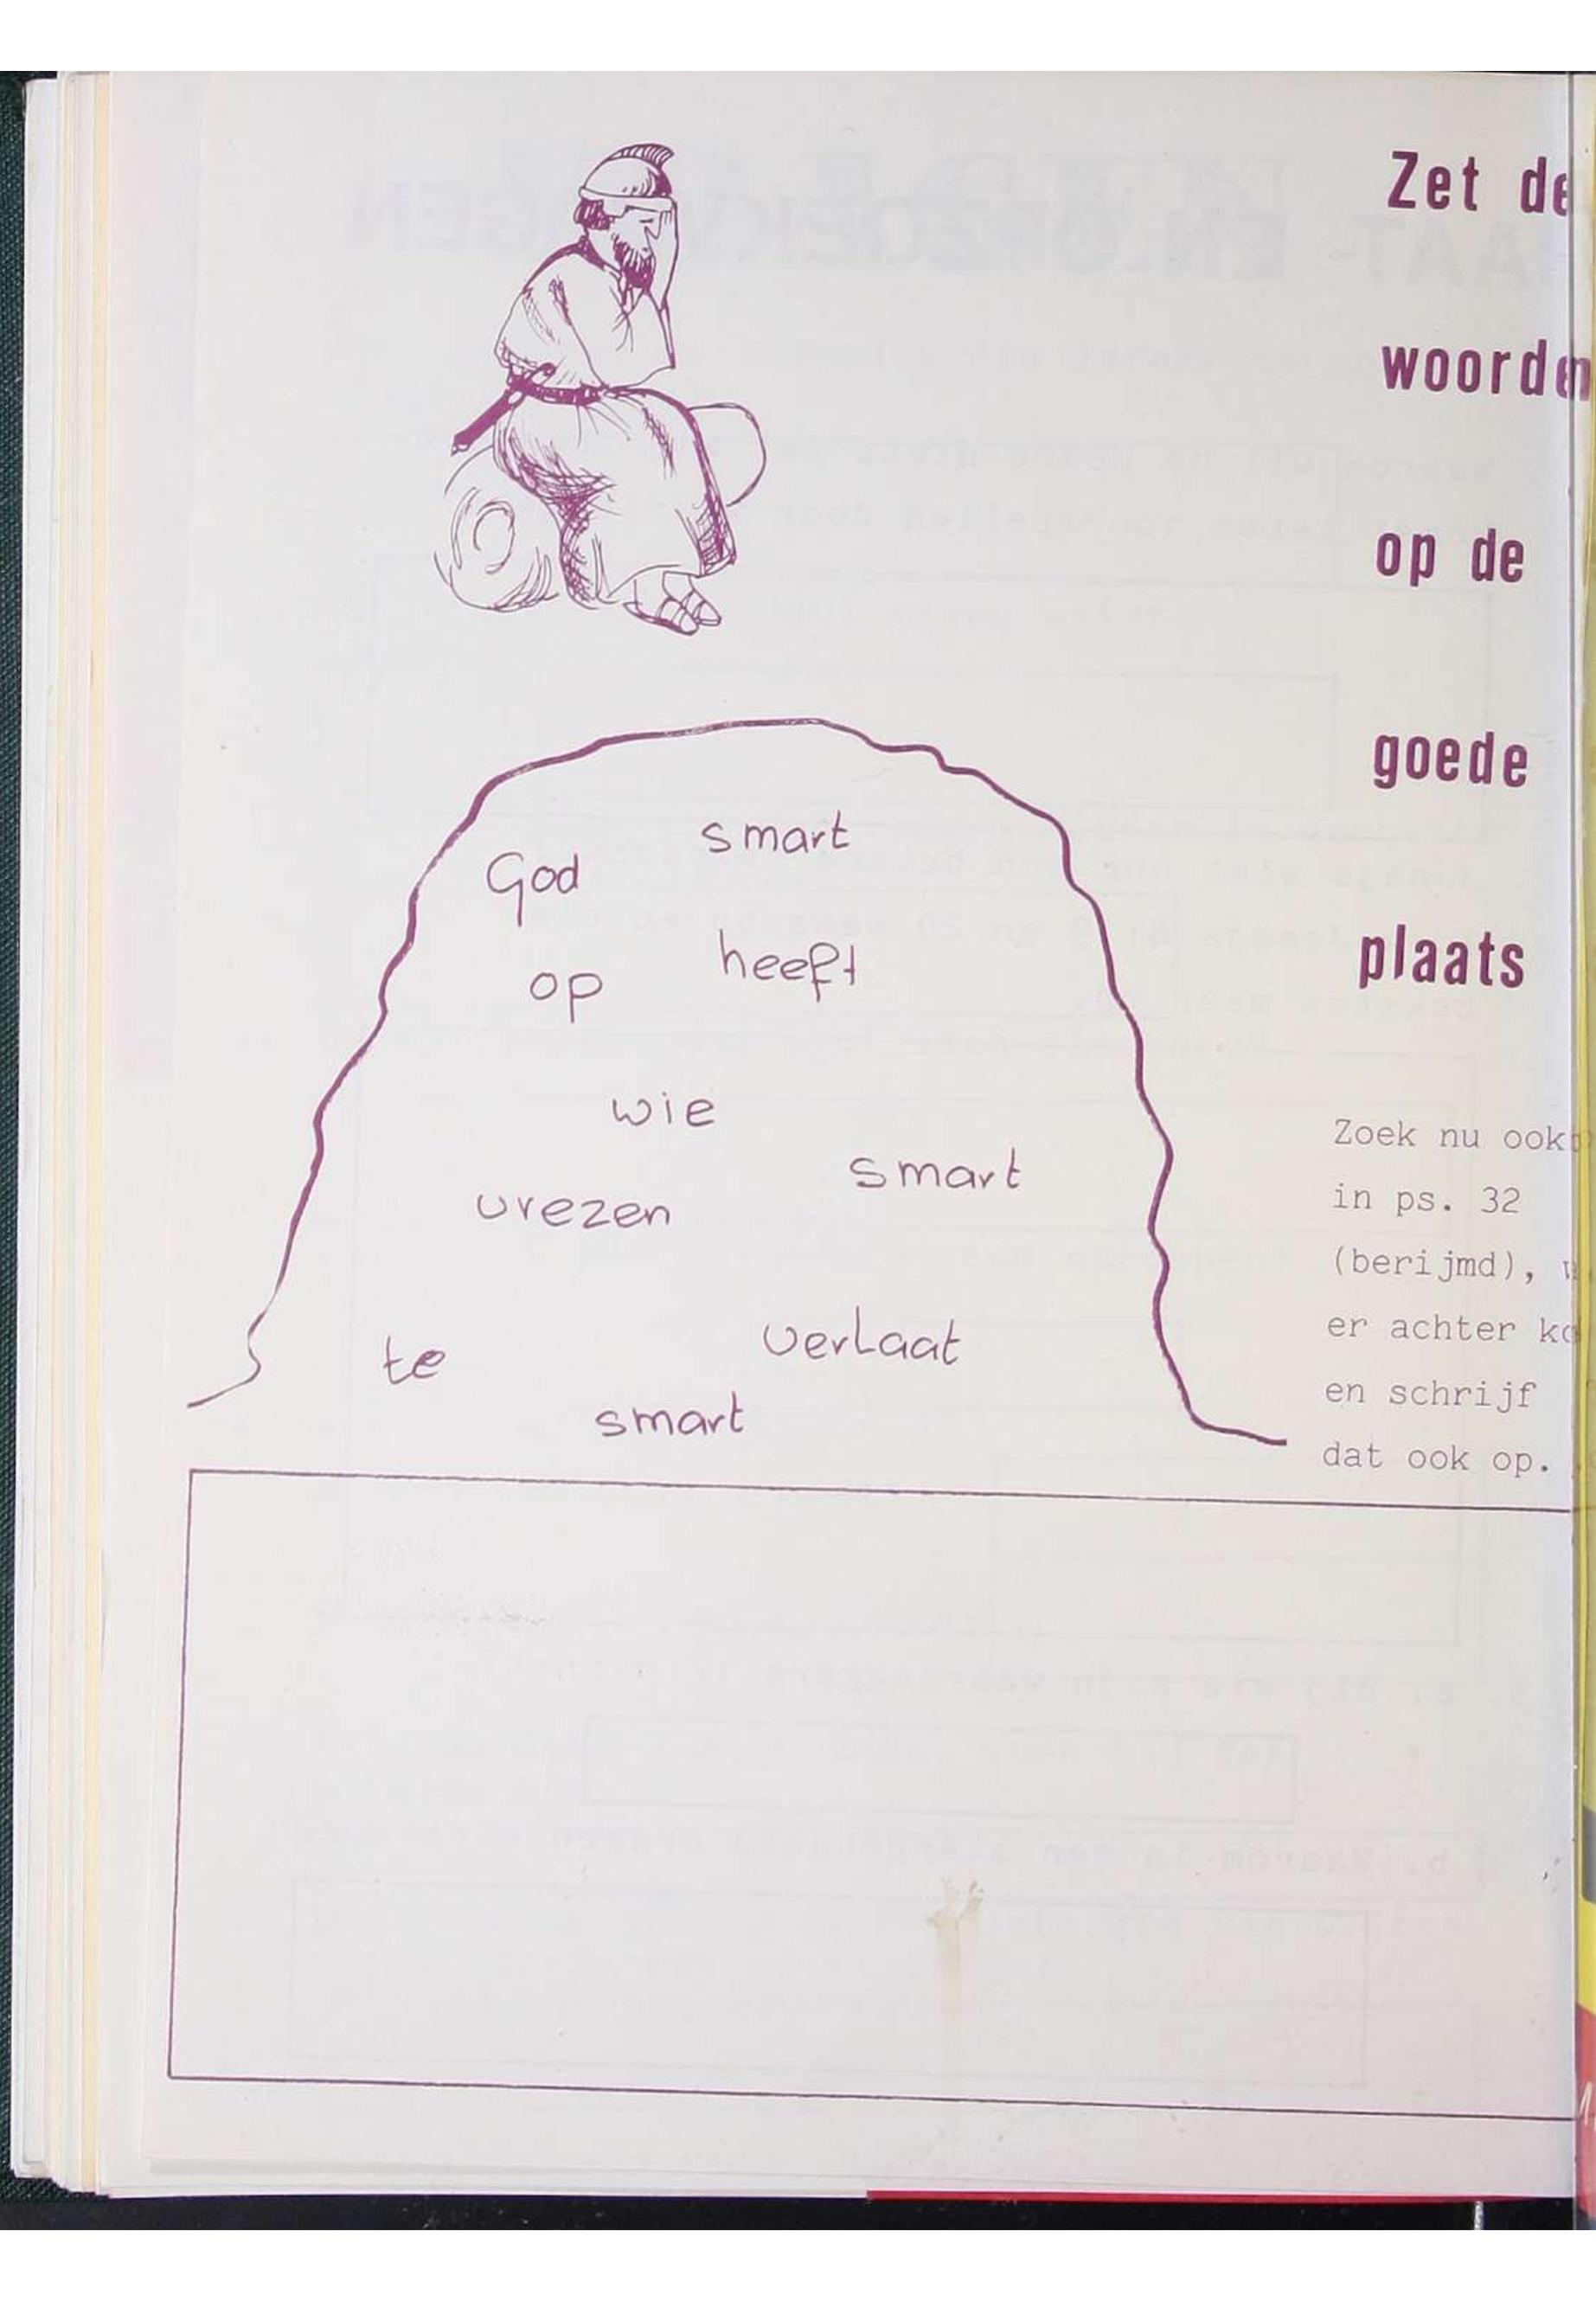 Zet de
woorden
op de
goede
plaats
smart
God
heeft
op
wie
smart
vrezen
verlaat
te
smart
Zoek nu ook
in ps. 32
(berijmd),
er achter
en schrijf
dat ook op.